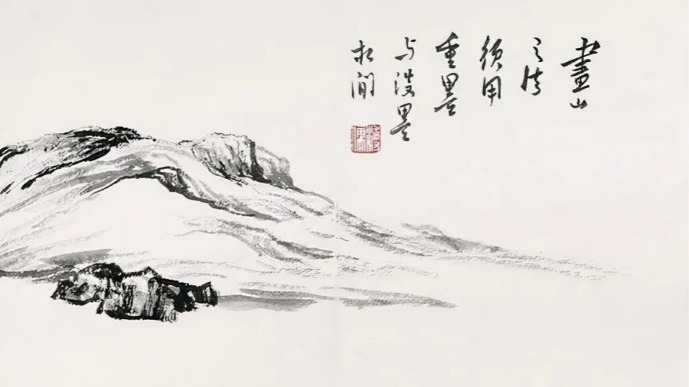 畫山
之法
须用
重墨
与淡墨
相间